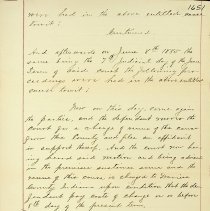 1651
were had in the above entitled cause
to wit:
Continued
And afterwards on June 8th 1885 the
same being the 7th Judicial day of the June
Term of said Court the following pro
ceedings were had in the above entitled
cause to wit:
Now on this day, came again
the parties, and the defendant moves the
Court for a change of venue the cause
from the County and files an affidavit
in support thereof. And the Court now hav
ing heard said motion and being advised
in the premises sustains same and the
venue of this cause is changed to
County Indiana upon condition that the de
fendant pay costs of change on or before
day of the present term.